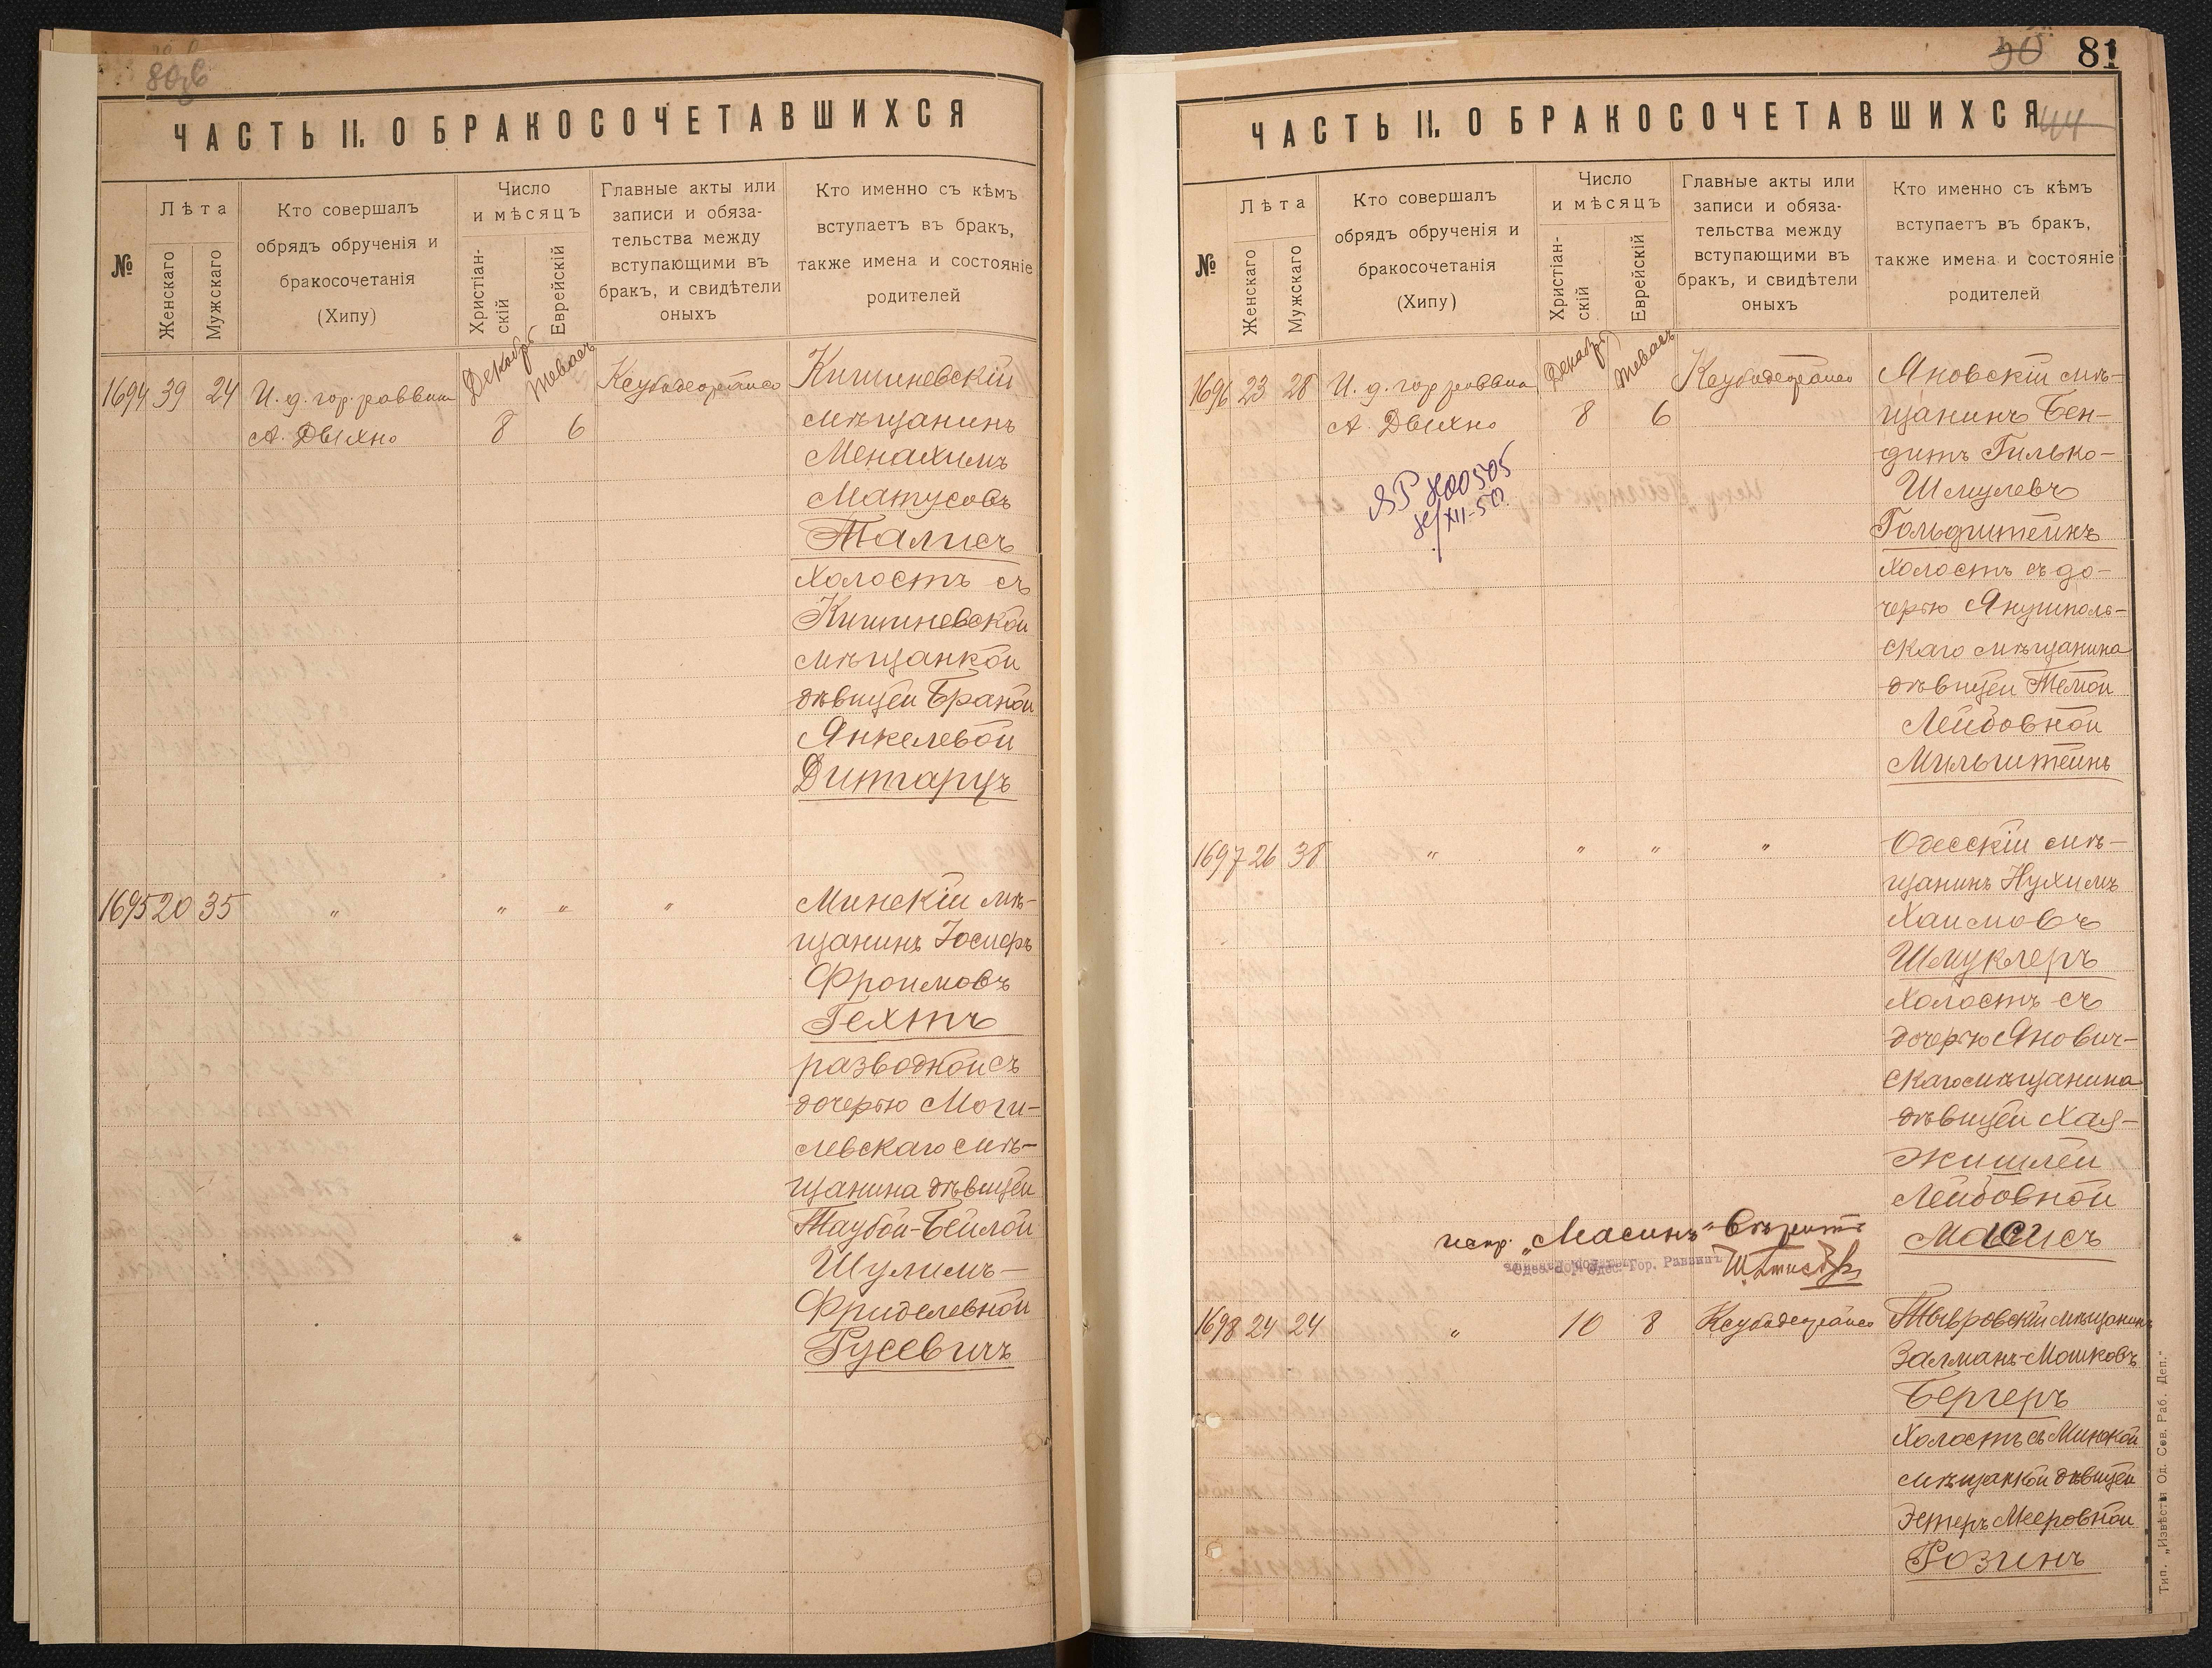 80об
ЧАСТЬ II. О БРАКОСОЧЕТАВШИХСЯ
№
Лѣта
Женскаго
Мужскаго
Кто совершалъ
обрядъ обрученія и
бракосочетанія
(Хипу)
Число
и мѣсяцъ
Христіан-
скій
Еврейскій
Главные акты или
записи и обяза-
тельства между
вступающими въ
бракъ, и свидѣтели
оныхъ
Кто именно съ кѣмъ
вступаетъ въ бракъ,
также имена и состояніе
родителей
1694 39 24 И. д. гор. раввина Декабрь Теваесъ Кишиневскій
А. Двихно 8 6 мѣщанинъ
Менахимъ
Матусовъ
Талисъ
холостъ съ
Кишиневской
мѣщанкой
дѣвицей Браной
Янкелевой
Дитгарцъ
1695 20 35 " " " " Минскій мѣ-
щанинъ Іосифъ
Фроимовъ
Гехтъ
разводной съ
дочерью Моги-
левскаго мѣ-
щанина дѣвицей
Таубой-Бейлой
Шулимъ-
Фриделевной
Русевичъ
50 81
ЧАСТЬ II. О БРАКОСОЧЕТАВШИХСЯ
44
№
Лѣта
Женскаго
Мужскаго
Кто совершалъ
обрядъ обрученія и
бракосочетанія
(Хипу)
Число
и мѣсяцъ
Христіан-
скій
Еврейскій
Главные акты или
записи и обяза-
тельства между
вступающими въ
бракъ, и свидѣтели
оныхъ
Кто именно съ кѣмъ
вступаетъ въ бракъ,
также имена и состояніе
родителей
1696 23 28 И. д. гор. раввина Декабрь Теваесъ Яновскій мѣ-
А. Двихно 8 6 щанинъ Бен-
дитъ Гилько-
Шмулевъ
Гольдштейнъ
холостъ съ до-
черью Янушполь-
скаго мѣщанина
дѣвицей Темой
Лейбовной
Мильштейнъ
1697 26 38 " " " " Одесскій мѣ-
щанинъ Нухимъ
Хаимовъ
Шмуклеръ
холостъ съ
дочерью Янович-
скаго мѣщанина
дѣвицей Хая-
Жишлей
Лейбовной
Масисъ
испр. „Масинъ"
Гор. Раввинъ
1698 24 24 " 10 8 Тывровскій мѣщанинъ
Залманъ-Мошковъ
Бергеръ
холостъ съ Минской
мѣщанкой дѣвицей
Эстеръ Мееровной
Розинъ
Тип. „Извѣстія Од. Сов. Раб. Деп."